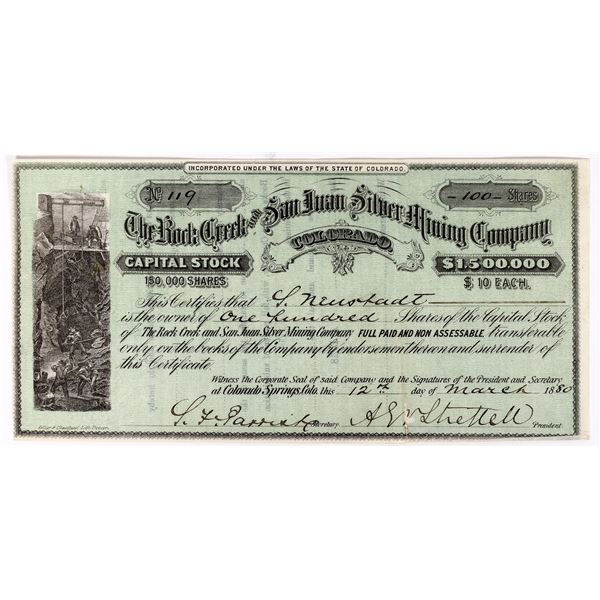 INCORPORATED UNDER THE LAWS OF THE STATE OF COLORADO.
No 119
-100- Shares
The Rock Creek AND San Juan Silver Mining Company
COLORADO.
CAPITAL STOCK
$1.500.000
150,000 SHARES
$10 EACH.
This Certifies that S. Neustadt
is the owner of One hundred Shares of the Capital Stock
of The Rock Creek and San Juan Silver Mining Company FULL PAID AND NON ASSESSABLE, transferable
only on the books of the Company by endorsement hereon and surrender of
this Certificate.
Witness the Corporate Seal of said Company and the Signatures of the President and Secretary
at Colorado Springs, Colo. this 12th day of March 1880
Secretary.
President.
Lith. Denver.